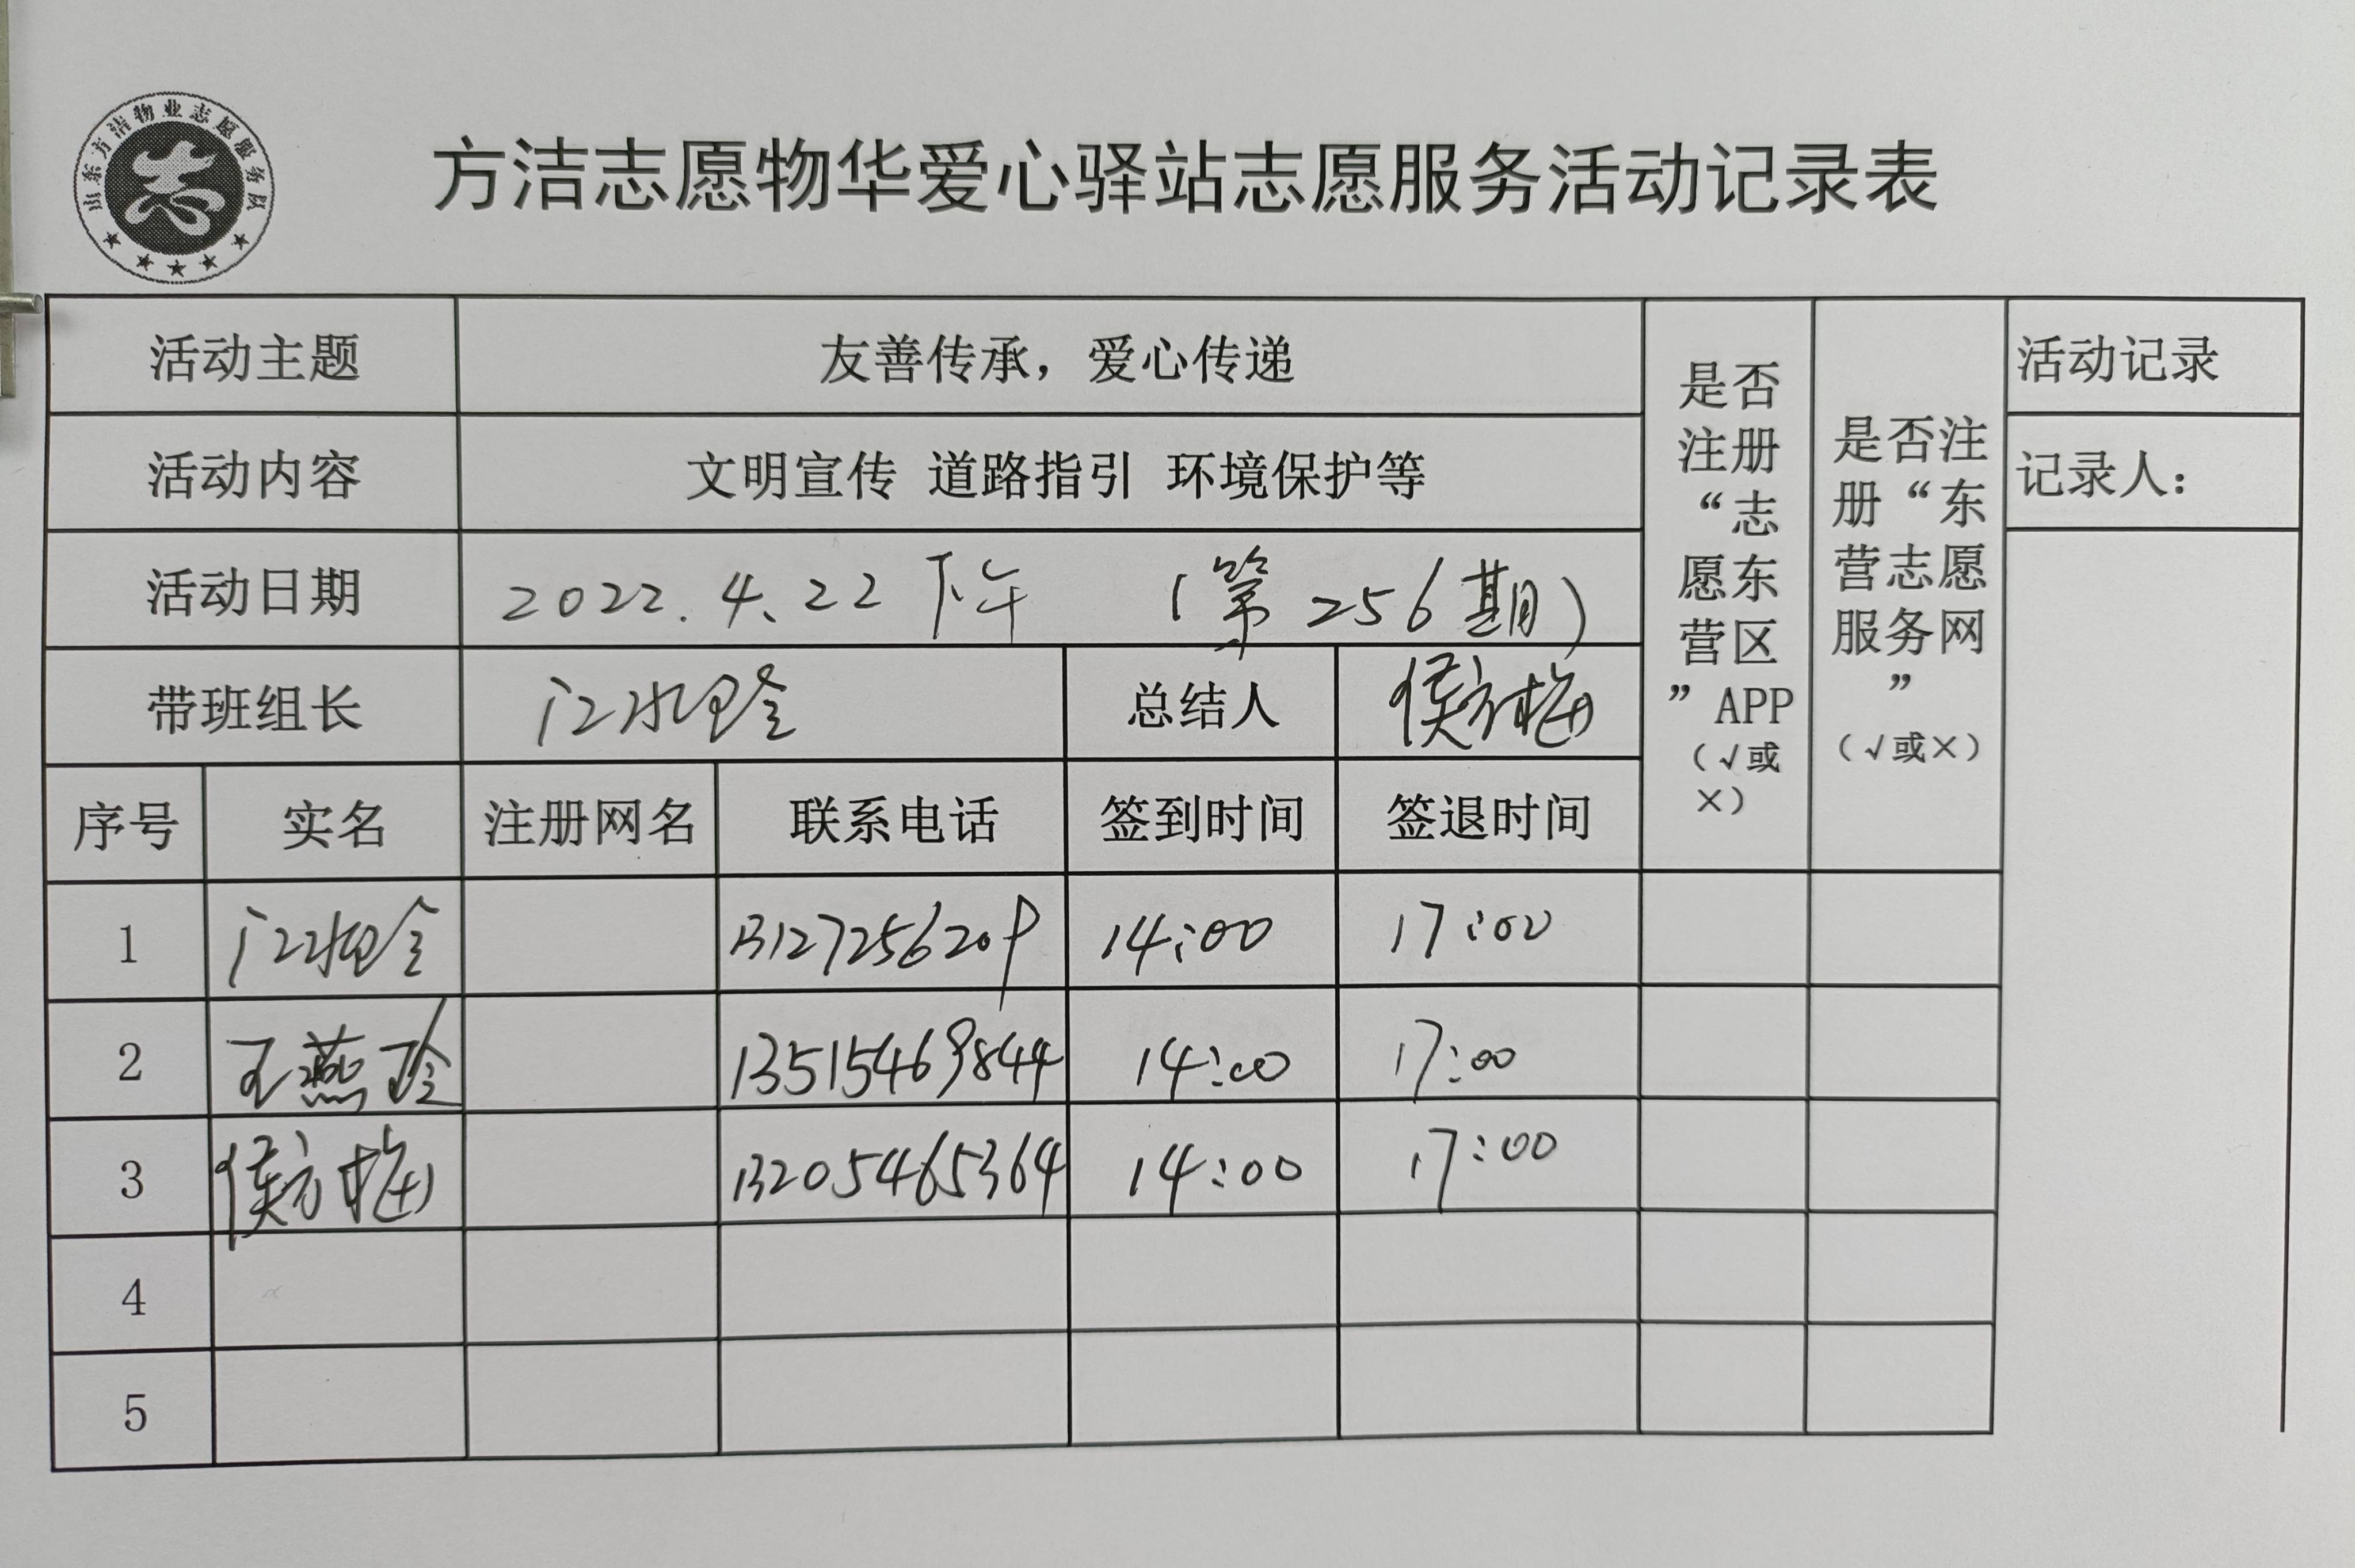 山东方洁物业志愿服务队
志
方洁志愿物华爱心驿站志愿服务活动记录表
活动主题 友善传承，爱心传递
活动内容 文明宣传 道路指引 环境保护等
活动日期 2022.4.22 下午 （第256期）
带班组长 总结人 侯方梅
序号 实名 注册网名 联系电话 签到时间 签退时间
是否
注册
“志
愿东
营区
”APP
（√或
×）
是否注
册“东
营志愿
服务网
”
（√或×）
活动记录
记录人：
1 13127256209 14:00 17:00
2 王燕玲 13515469844 14:00 17:00
3 侯方梅 13205465364 14:00 17:00
4
5